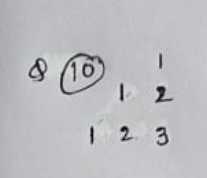 Q 10 1
1 2
1 2 3